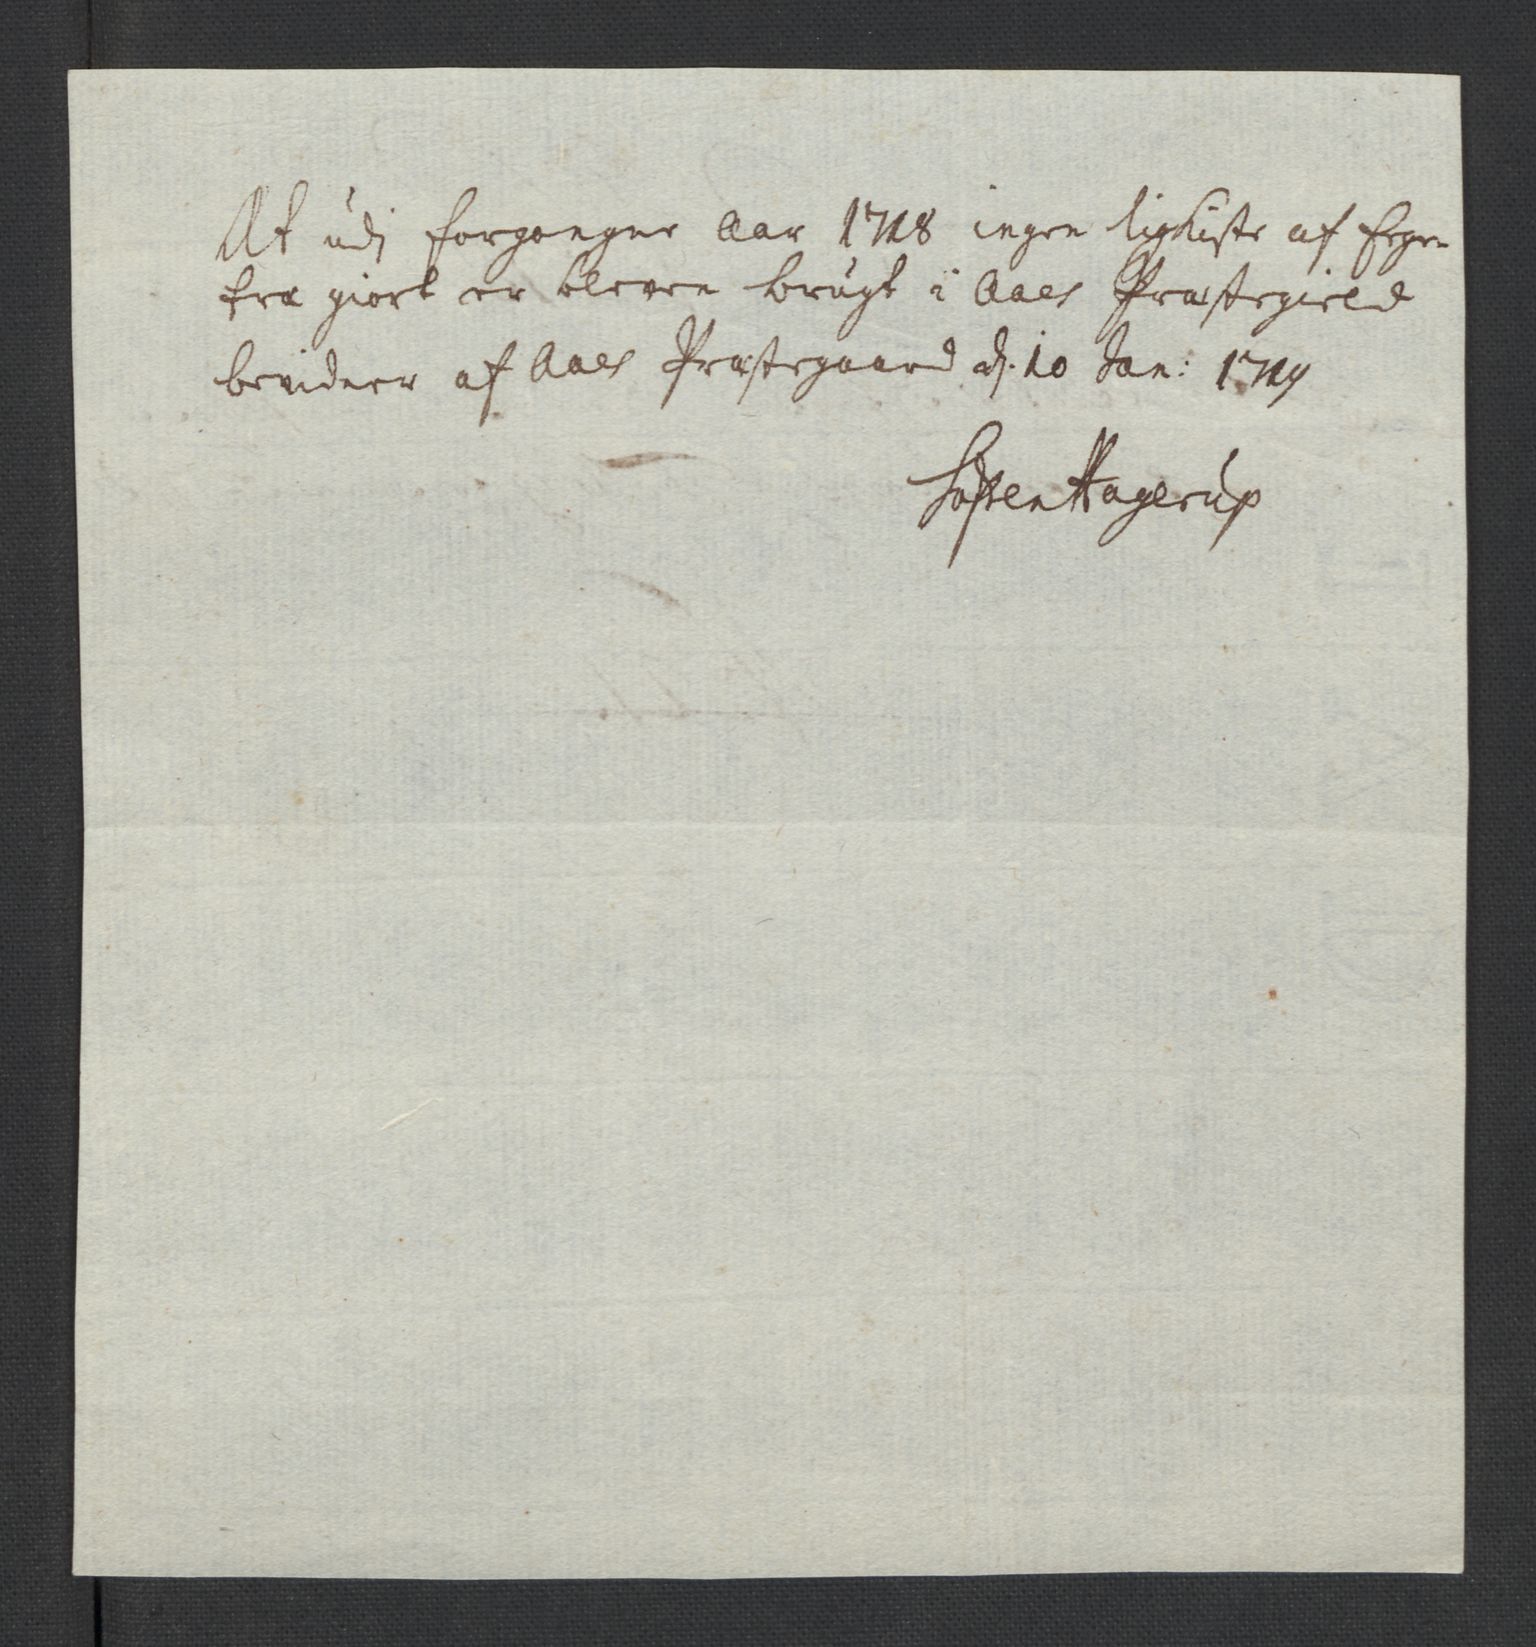 At udj forgangne Aar 1718 ingen ligkiste af Eegen
træ giort er bleven brugt i Aaes Præstegield
bevidner af Aaes Præstegaard dj. 10 Jan: 1719
Hagerup